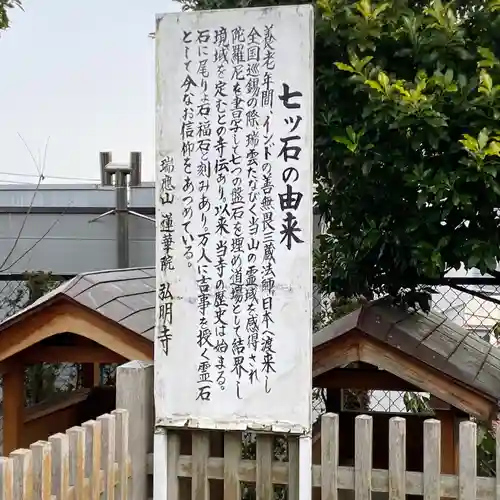 七ツ石の由来
養老年間、インドの善無畏三蔵法師日本へ渡来し
全国巡錫の際、瑞雲たなびく当山の霊域を感得され
陀羅尼を書写し七つの盤石を埋め道場として結界し
境域を定むとの寺伝あり。以来、当寺の歴史は始まる。
石に尾り 石、福石と刻みあり。万人に吉事を授く霊石
として今なお信仰をあつめている。
瑞應山 蓮華院 弘明寺